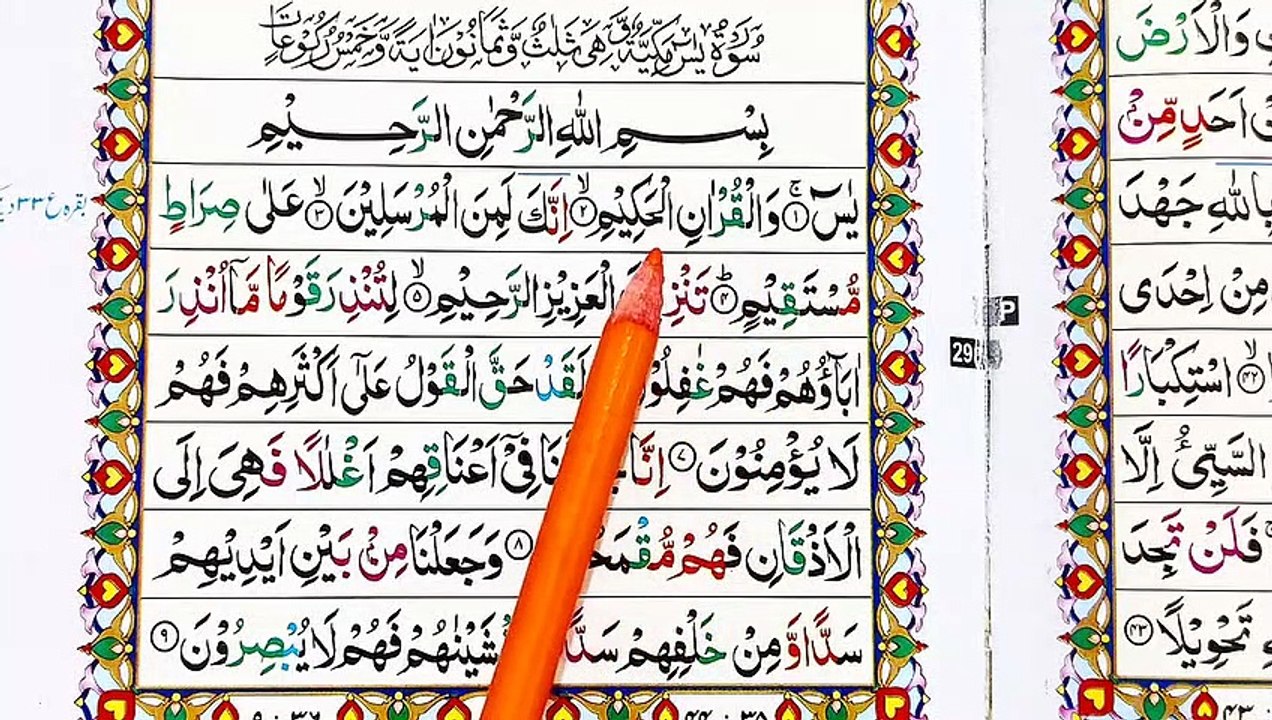 سُوْرَةُ يٰسٓ مَكِّيَّةٌ وَّهِىَ ثَلٰثٌ وَّثَمَانُوْنَ اٰيَةً وَّخَمْسُ رُكُوْعَاتٍ
بِسْمِ اللّٰهِ الرَّحْمٰنِ الرَّحِيْمِ
يٰسٓ ۚ﴿۱﴾ وَالْقُرْاٰنِ الْحَكِيْمِ ۙ﴿۲﴾ اِنَّكَ لَمِنَ الْمُرْسَلِيْنَ ۙ﴿۳﴾ عَلٰى صِرَاطٍ
مُّسْتَقِيْمٍ ؕ﴿۴﴾ تَنْزِ الْعَزِيْزِ الرَّحِيْمِ ۙ﴿۵﴾ لِتُنْذِرَ قَوْمًا مَّاۤ اُنْذِرَ
اٰبَآؤُهُمْ فَهُمْ غٰفِلُوْ لَقَدْ حَقَّ الْقَوْلُ عَلٰٓى اَكْثَرِهِمْ فَهُمْ
لَا يُؤْمِنُوْنَ ﴿۷﴾ اِنَّا نَا فِيْٓ اَعْنَاقِهِمْ اَغْلٰلًا فَهِىَ اِلَى
الْاَذْقَانِ فَهُمْ مُّقْمَحُ ﴿۸﴾ وَجَعَلْنَا مِنْۢ بَيْنِ اَيْدِيْهِمْ
سَدًّا وَّمِنْ خَلْفِهِمْ سَدًّا شَيْنٰهُمْ فَهُمْ لَا يُبْصِرُوْنَ ﴿۹﴾
بقره ع ۳۳
وَالْاَرْضَ
اَحَدٍ مِّنْۢ
بِاللّٰهِ جَهْدَ
مِنْ اِحْدَى
﴿۴۲﴾ اسْتِكْبَارًا
السَّيِّئُ اِلَّا
فَلَنْ تَجِدَ
تَحْوِيْلًا ﴿۴۳﴾
P
29